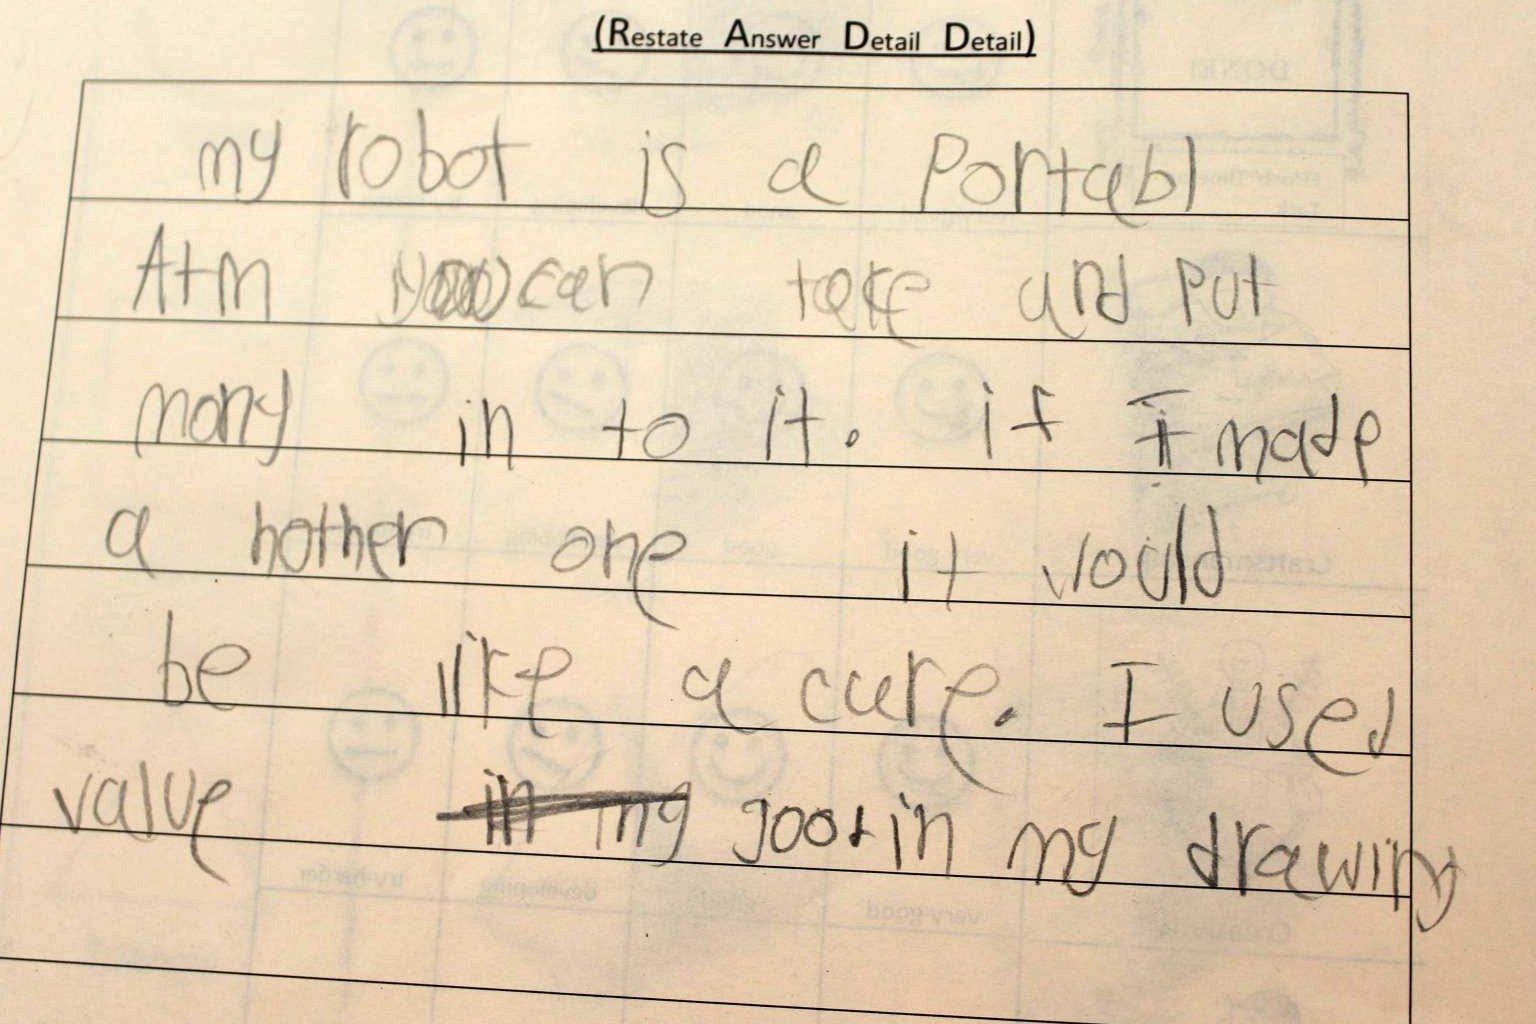 (Restate Answer Detail Detail)
my robot is a Portabl
Atm you can take and put
mony in to it. if I made
a nother one it would
be like a cure. I used
value in my good in my drawing